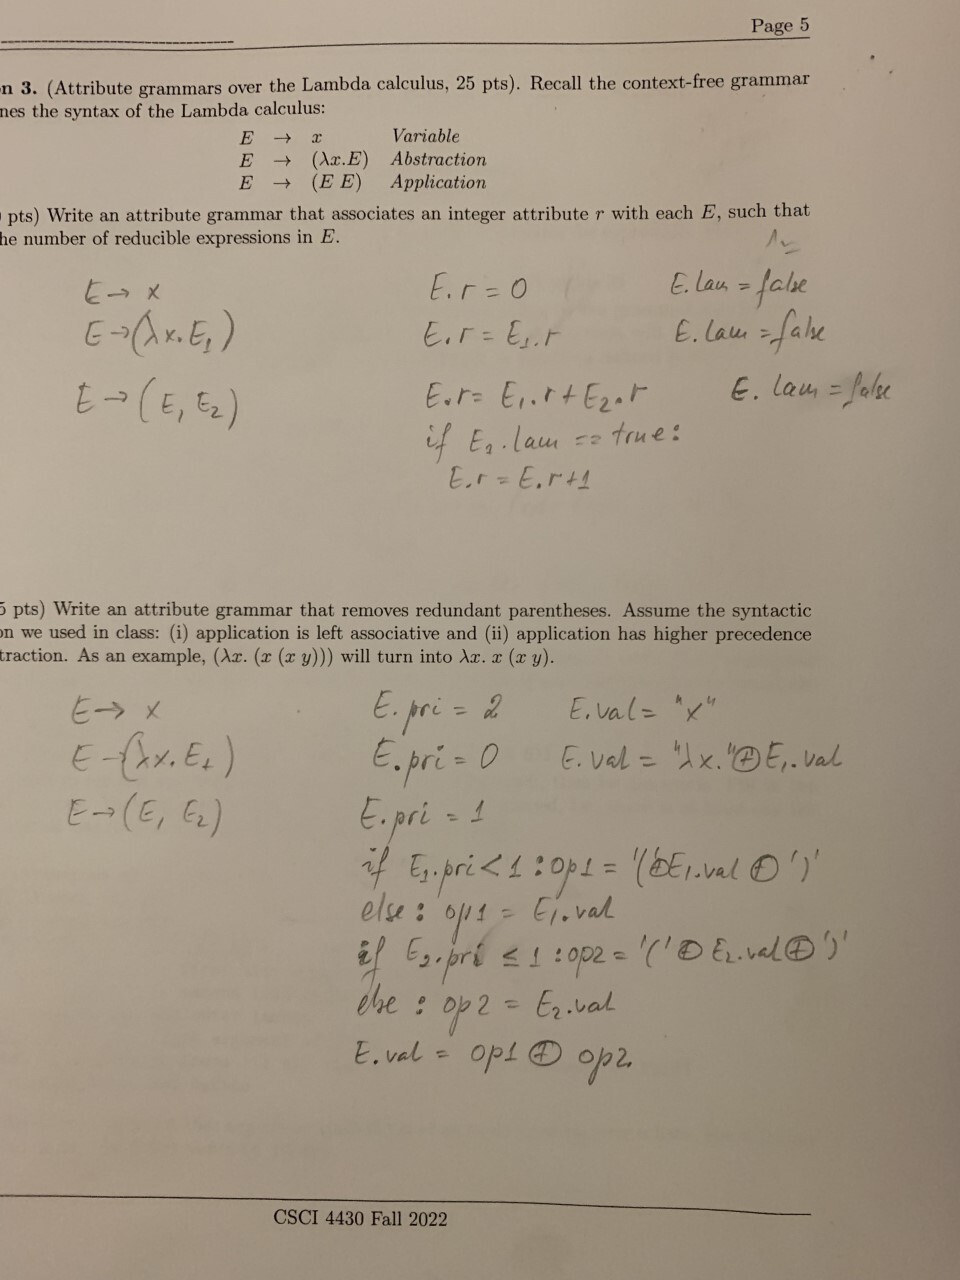 Page 5
n 3. (Attribute grammars over the Lambda calculus, 25 pts). Recall the context-free grammar
nes the syntax of the Lambda calculus:
E → x Variable
E → (λx.E) Abstraction
E → (E E) Application
pts) Write an attribute grammar that associates an integer attribute r with each E, such that
he number of reducible expressions in E.
E → x E.r = 0 E.lam = false
E → (λx.E₁) E.r = E₁.r E.lam = false
E → (E₁ E₂) E.r = E₁.r + E₂.r E.lam = false
if E₁.lam == true:
E.r = E.r+1
5 pts) Write an attribute grammar that removes redundant parentheses. Assume the syntactic
on we used in class: (i) application is left associative and (ii) application has higher precedence
traction. As an example, (λx. (x (x y))) will turn into λx. x (x y).
E → x E.pri = 2 E.val = "x"
E → (λx.E₁) E.pri = 0 E.val = "λx." ⊕ E₁.val
E → (E₁ E₂) E.pri = 1
if E₁.pri < 1 : op1 = '(' ⊕ E₁.val ⊕ ')'
else : op1 = E₁.val
if E₂.pri ≤ 1 : op2 = '(' ⊕ E₂.val ⊕ ')'
else : op2 = E₂.val
E.val = op1 ⊕ op2
CSCI 4430 Fall 2022